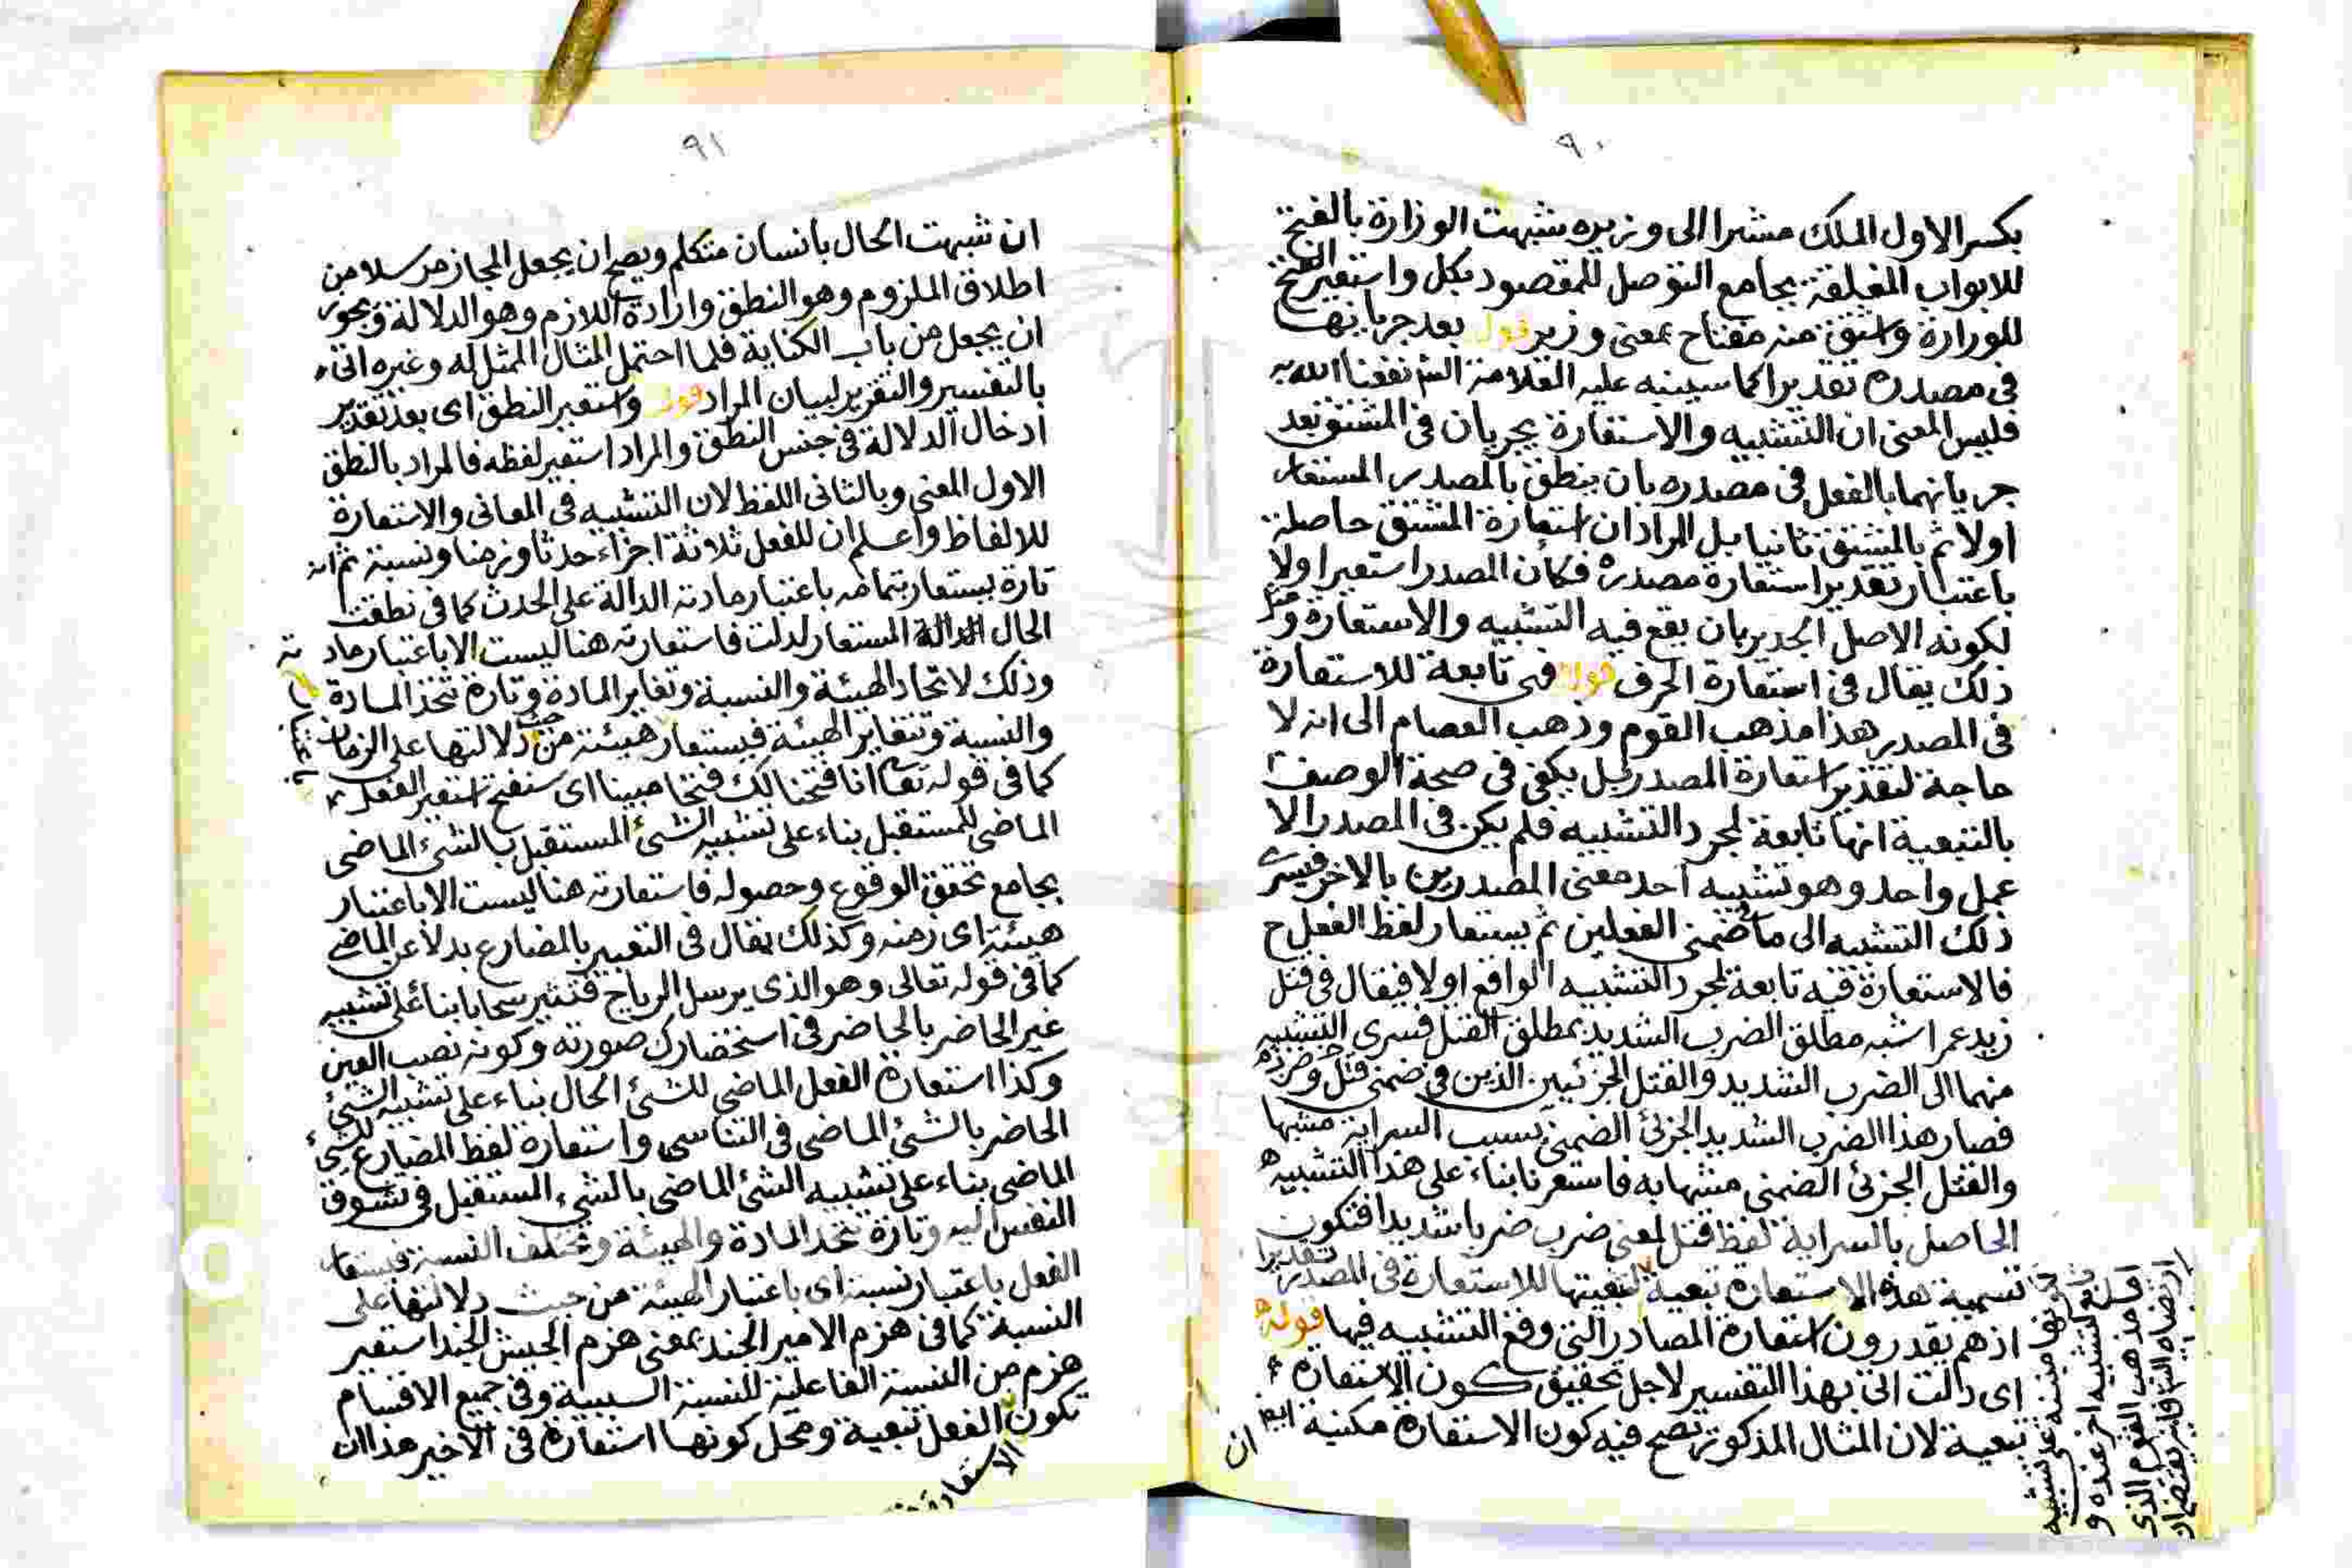 ٩٠
بكسر الاول الملك مشيرا الى وزيره شبهت الوزارة بالفتح
للابواب المغلقة بجامع التوصل للمقصود بكل واستعير الفتح
للوزارة واشتق منه مفتاح بمعنى وزير قوله بعد جريانها
فى مصدره تقديرا كما سيبينه عليه العلامة نفعنا الله به
فليس المعنى ان التشبيه والاستعارة يجريان فى المشتق بعد
جريانهما بالفعل فى مصدره بان ينطق بالمصدر المستعار
اولا ثم بالمشتق ثانيا بل المراد ان استعارة المشتق حاصلة
باعتبار تقدير استعارة مصدره فكأن المصدر استعير اولا
لكونه الاصل الجدير بان يقع فيه التشبيه والاستعارة ومثل
ذلك يقال فى استعارة الحرف قوله فهى تابعة للاستعارة
فى المصدر هذا مذهب القوم وذهب العصام الى انه لا
حاجة لتقدير استعارة المصدر بل يكفى فى صحة الوصف
بالتبعية انها تابعة لمجرد التشبيه فلم يكن فى المصدر الا
عمل واحد وهو تشبيه احد معنى المصدرين بالاخر فيسرى
ذلك التشبيه الى ما ضمنى الفعلين ثم يستعار لفظ الفعل ح
فالاستعارة فيه تابعة لمجرد التشبيه الواقع اولا فيقال فى قتل
زيد عمرا شبه مطلق الضرب الشديد بمطلق القتل فسرى التشبيه
منهما الى الضرب الشديد والقتل الجزئيين الذين فى ضمنى قتل وضرب
فصار هذا الضرب الشديد الجزئى الضمنى بسبب السراية مشبها
والقتل الجزئى الضمنى مشبها به فاستعرنا بناء على هذا التشبيه
الحاصل بالسراية لفظ قتل لمعنى ضرب ضربا شديدا فتكون
تسمية هذه الاستعارة تبعية لتبعيتها للاستعارة فى المصدر تقديرا
اذ هم يقدرون استعارة المصادر التى وقع التشبيه فيها قوله
اى دالت اتى بهذا التفسير لاجل تحقيق كون الاستعارة
تبعية لان المثال المذكور تصح فيه كون الاستعارة مكنية ايضا
ان
٩١
ان شبهت الحال بانسان متكلم ويصح ان يجعل المجاز مرسلا من
اطلاق الملزوم وهو النطق وارادة اللازم وهو الدلالة ويجوز
ان يجعل من باب الكناية فلما احتمل المثال الممثل له وغيره اتى
بالتفسير والتقرير لبيان المراد قوله واستعير النطق اى بعد تقدير
ادخال الدلالة فى جنس النطق والمراد استعير لفظه فالمراد بالنطق
الاول المعنى وبالثانى اللفظ لان التشبيه فى المعانى والاستعارة
للالفاظ واعلم ان للفعل ثلاثة اجزاء حدثا وزمنا ونسبة ثم انه
تارة يستعار بتمامه باعتبار مادته الدالة على الحدث كما فى نطقت
الحال الدالة المستعار لدلت فاستعارته هنا ليست الا باعتبار مادته
وذلك لاتحاد الهيئة والنسبة وتغاير المادة وتارة تتحد المادة
والنسبة وتتغاير الهيئة فيستعار هيئته من حيث دلالتها على الزمان
كما فى قوله تعا انا فتحنا لك فتحا مبينا اى سنفتح استعير الفعل
الماضى للمستقبل بناء على تشبيه الشئ المستقبل بالشئ الماضى
بجامع تحقق الوقوع وحصوله فاستعارته هنا ليست الا باعتبار
هيئته اى زمنه وكذلك يقال فى التعبير بالمضارع بدلا عن الماضى
كما فى قوله تعالى وهو الذى يرسل الرياح فتثير سحابا بناء على تشبيه
غير الحاضر بالحاضر فى استحضارك صورته وكونه نصب العين
وكذا استعارة الفعل الماضى للشئ الحال بناء على تشبيه الشئ
الحاضر بالشئ الماضى فى التناسى واستعارة لفظ المضارع للشئ
الماضى بناء على تشبيه الشئ الماضى بالشئ المستقبل فى تشوق
النفس اليه وتارة تتحد المادة والهيئة وتختلف النسبة فيستعار
الفعل باعتبار نسبته اى باعتبار الهيئة من حيث دلالتها على
النسبة كما فى هزم الامير الجند بمعنى هزم الجيش الجند استعير
هزم من النسبة الفاعلية للنسبة السببية وفى جميع الاقسام
تكون الفعل تبعية ومحل كونها استعارة فى الاخير هذا ان
الاستعارة